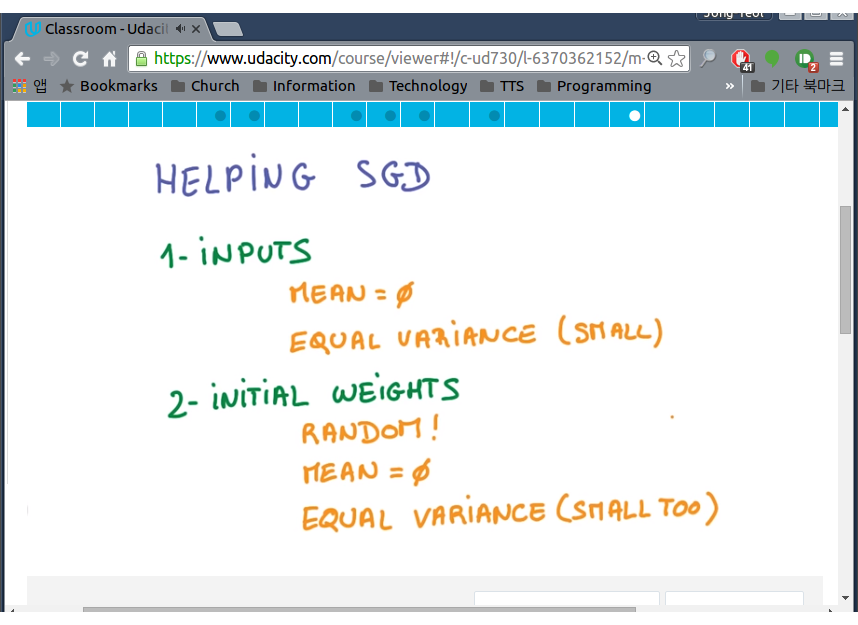 Jong Yeol
Classroom - Udaci
https://www.udacity.com/course/viewer#!/c-ud730/l-6370362152/m-
41
2
앱 Bookmarks Church Information Technology TTS Programming » 기타 북마크
HELPING SGD
1- INPUTS
MEAN = Ø
EQUAL VARIANCE (SMALL)
2- INITIAL WEIGHTS
RANDOM!
MEAN = Ø
EQUAL VARIANCE (SMALL TOO)